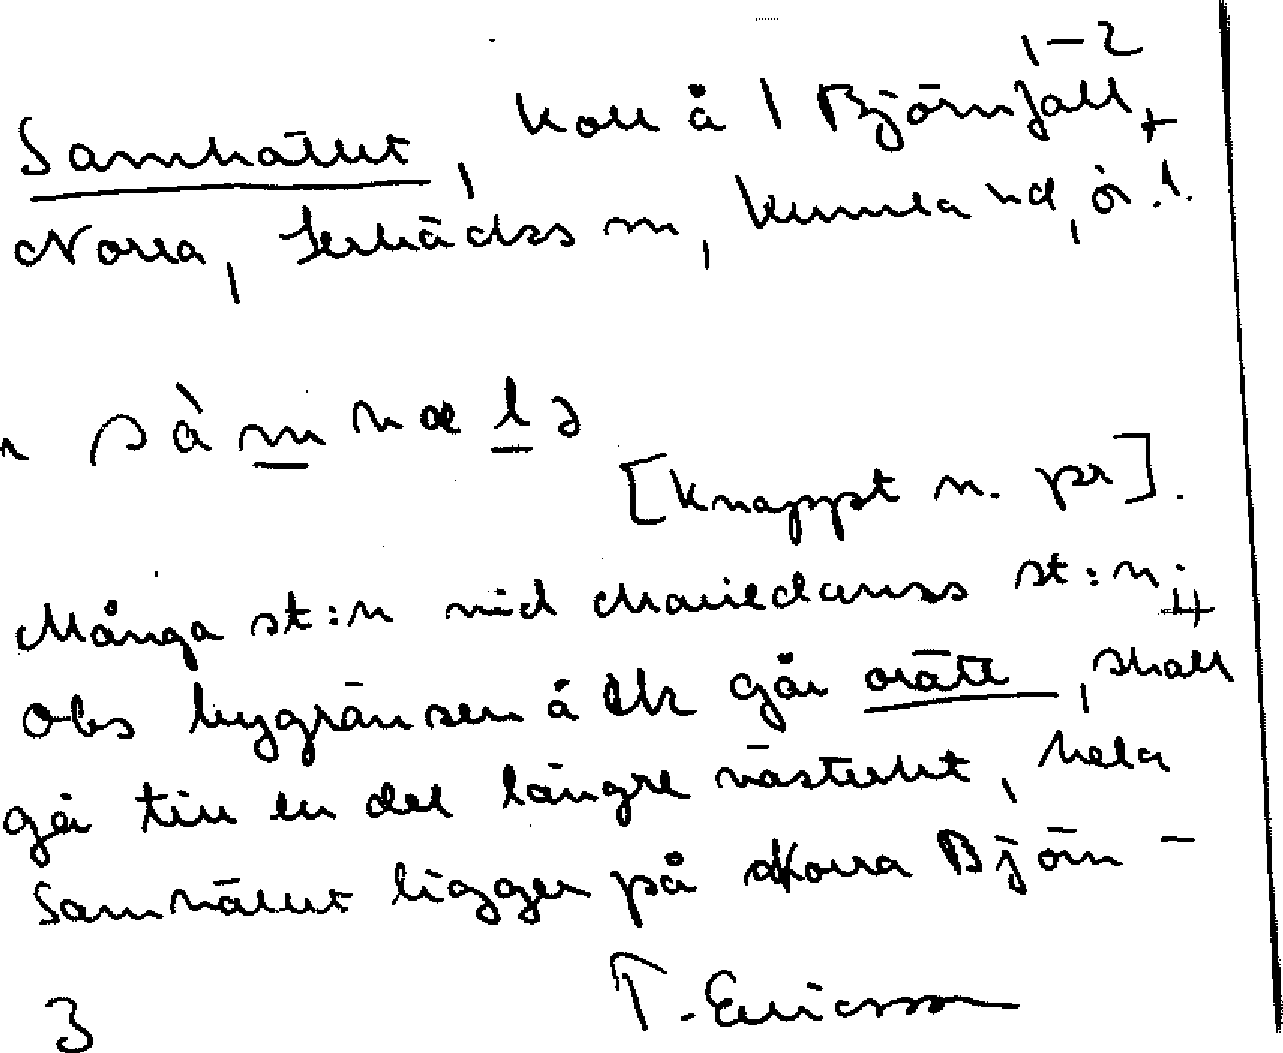 1-2
Samhället, koll å 1 Björnfall,
Norra, Lerbäcks sn, Kumla hd, ör.l.
sàmhælə
[Knappt n. pr].
Många st:n vid Mariedamss st:n;
Obs bygränsen å Ek går orätt, skall
gå till en del längre västerut, hela
Samhället ligger på Norra Björn-
3 T. Ericsson